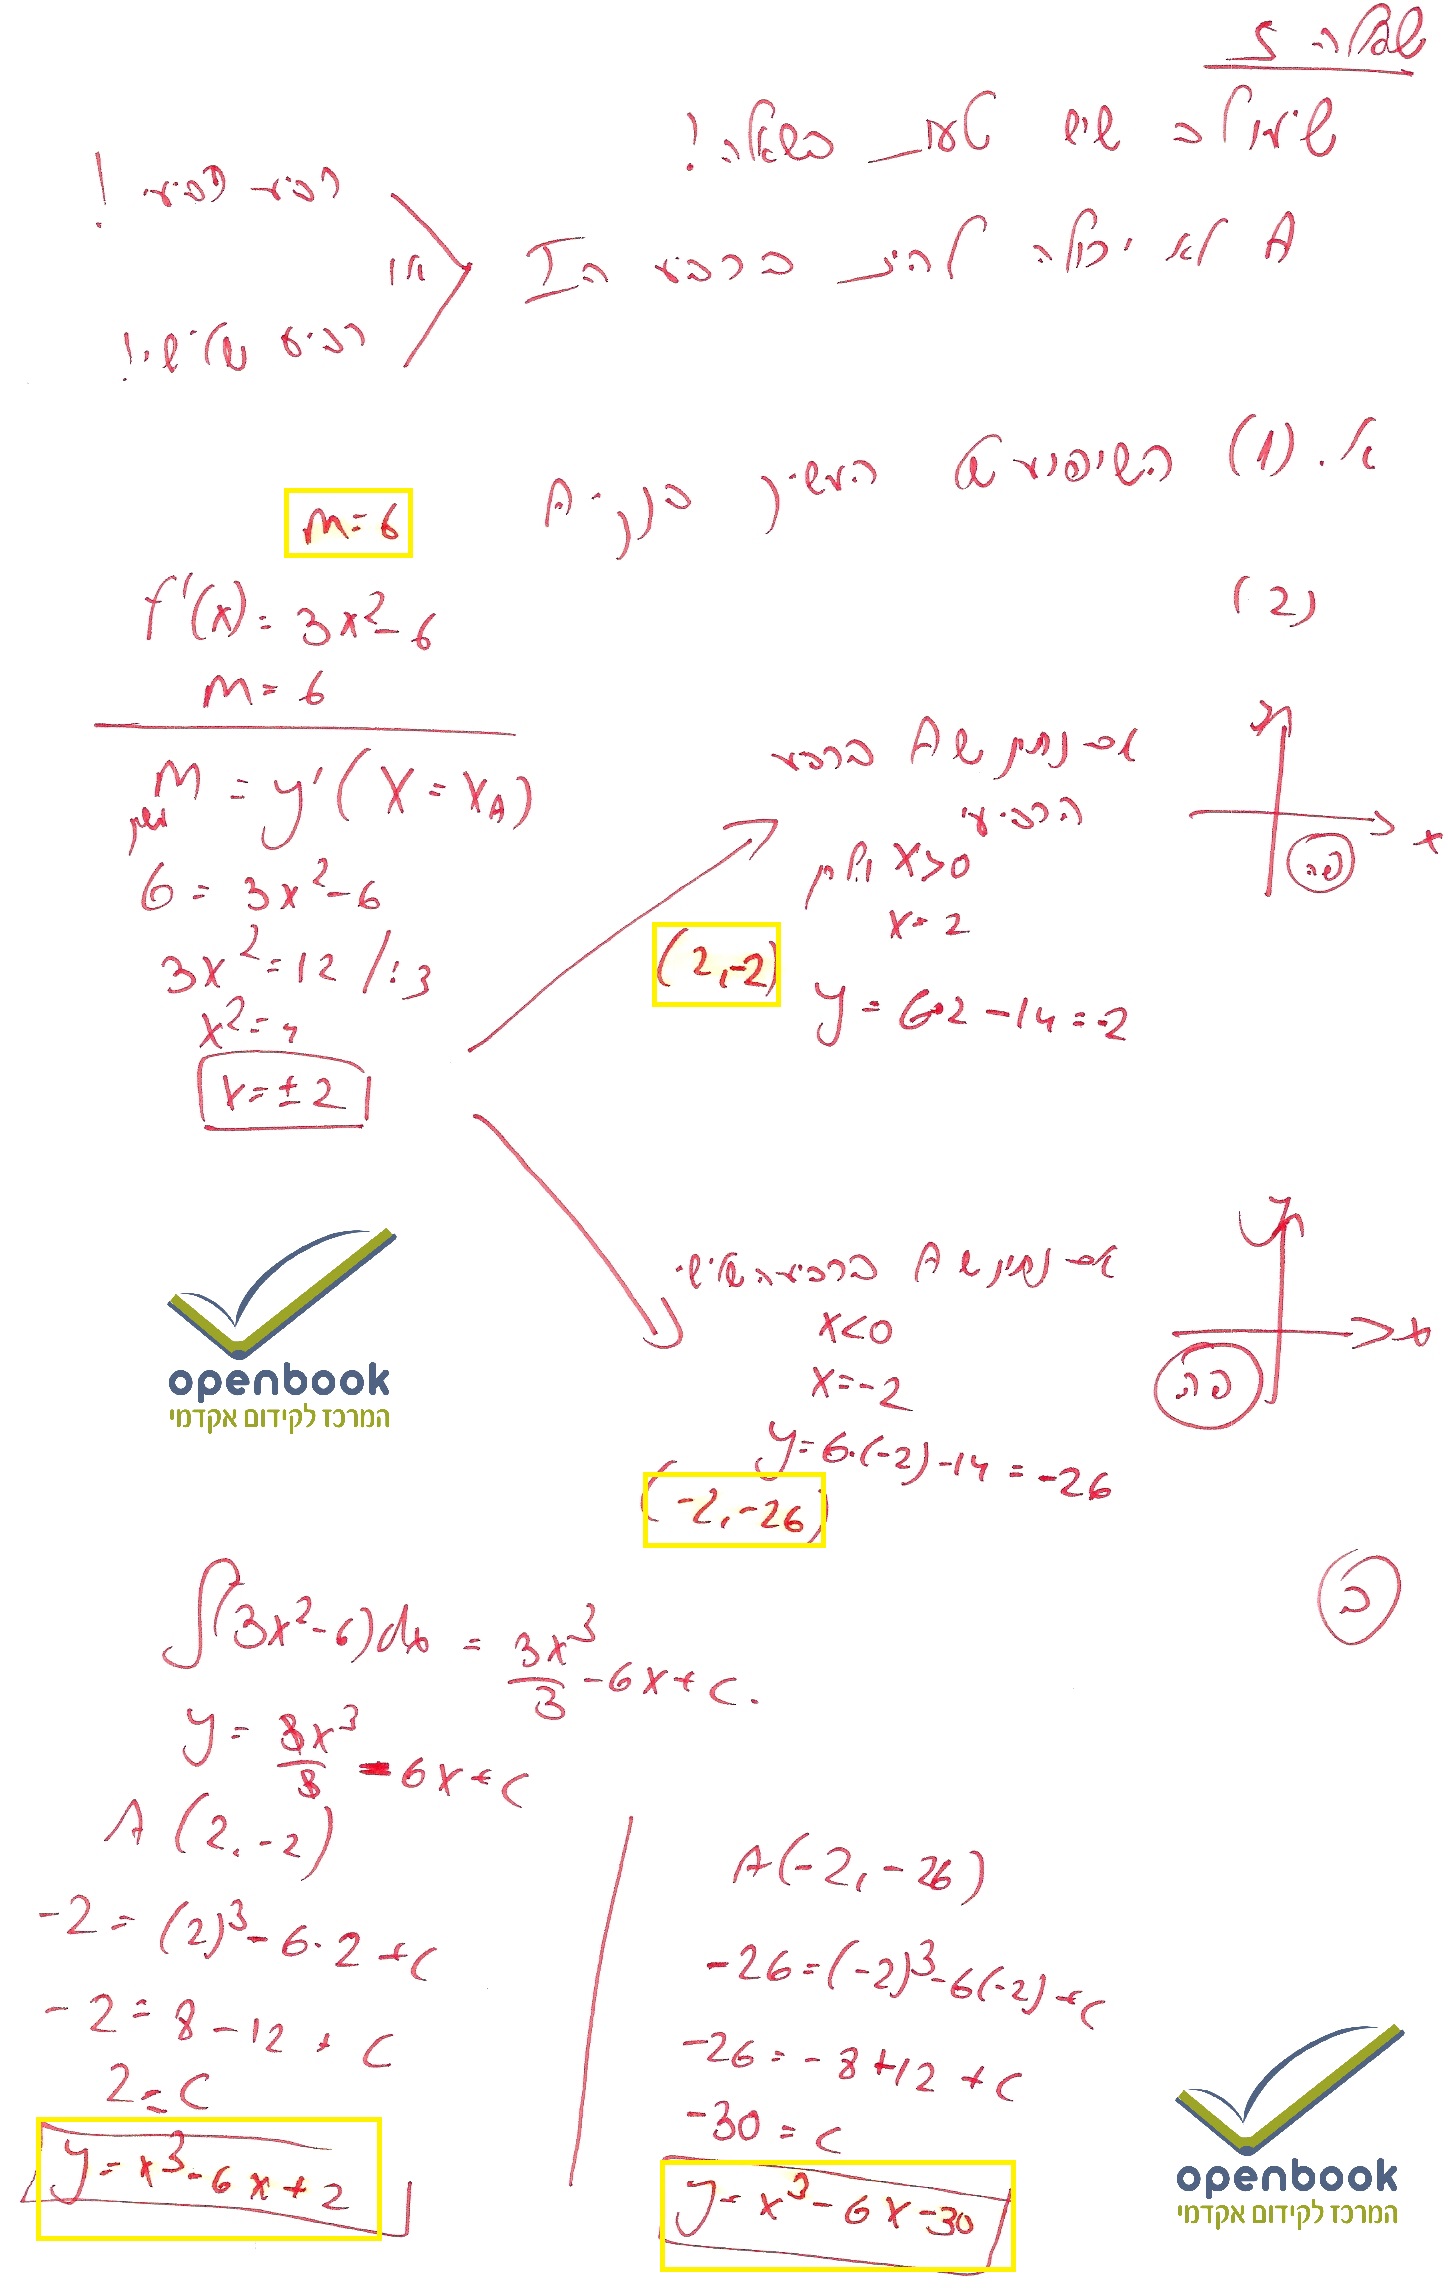 שאלה 7
שימו לב שיש טעות בשאלה!
A לא יכולה להיות ברביע הI
רביע רביעי!
או
רביע שלישי!
א. (1) השיפוע של המשיק בנק' A
m=6
(2)
f'(x)= 3x²-6
m=6
m = y'(x = xA)
משיק
6 = 3x²-6
3x²=12 /:3
x²=4
x=±2
אם נתון שA ברביע
הרביעי
x>0 ולכן
x=2
(2,-2)
y = 6•2 -14 =-2
y
x
פה
אם נתון שA ברביע השלישי
x<0
x=-2
y=6•(-2)-14 = -26
(-2,-26)
y
x
פה
openbook
המרכז לקידום אקדמי
ב
∫(3x²-6)dx = 3x³/3 -6x+c.
y= 3x³/3 -6x+c
A (2,-2)
-2= (2)³-6•2+c
-2=8-12+c
2=c
y=x³-6x+2
A(-2,-26)
-26=(-2)³-6(-2)+c
-26=-8+12+c
-30=c
y=x³-6x-30
openbook
המרכז לקידום אקדמי